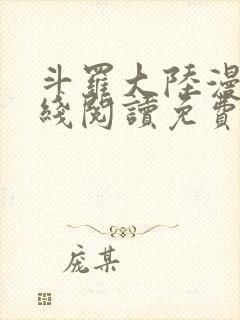 斗羅大陸漫
綫閱讀免費
庞某